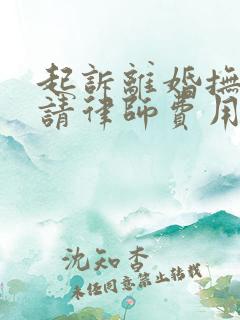 起訴離婚撫
請律師費用
沈知杳
未經同意禁止轉載